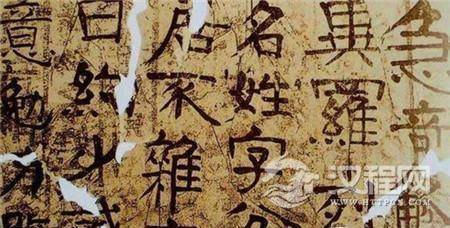 急奇觚
異羅列
名姓字分
居不雜
日約少誠
意勉力務
汉程网
WWW.HTTPCN.COM